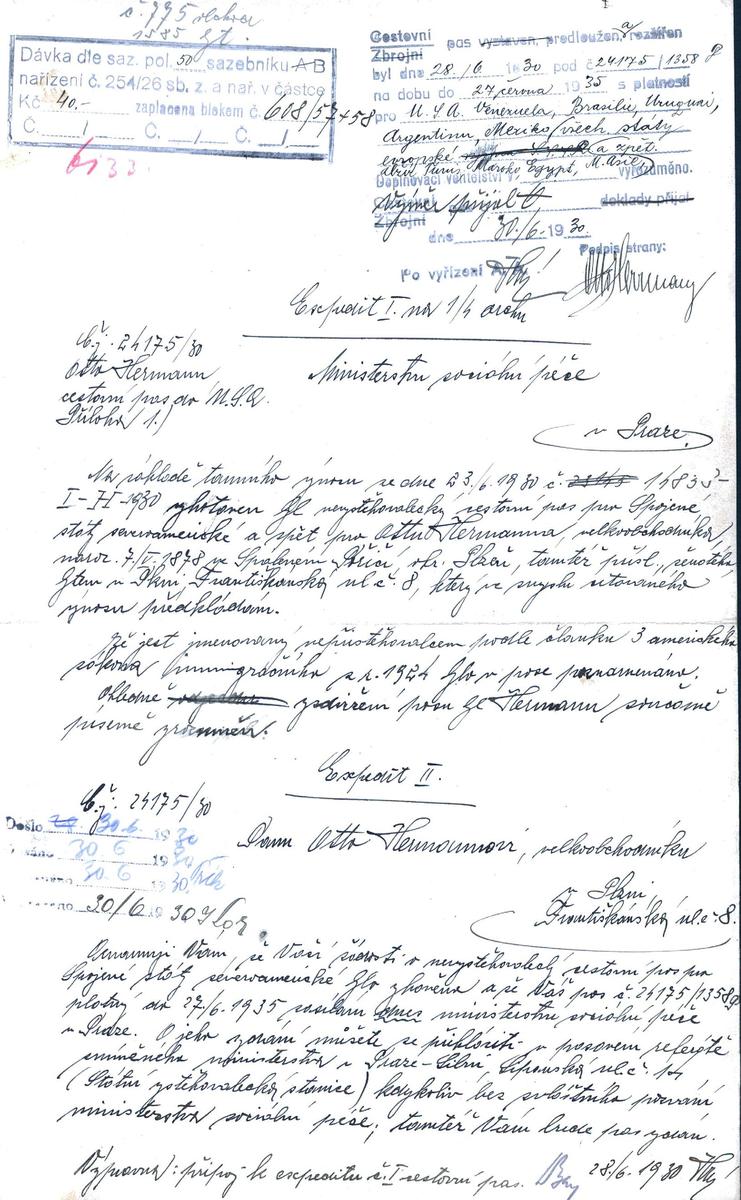 č. 775
1585
Dávka dle saz. pol. 50 sazebníku AB
nařízení č. 254/26 sb. z. a nař. v částce
Kč 40.- zaplacena blokem č. 608/57+58
Č. / Č. / Č. /
6133.
Cestovní pas vystaven, predloužen, a rozšířen
Zbrojní
byl dne 28./6. 1930 pod č 24175/1358 g
na dobu do 27. června 1935 s platností
pro U.S.A. Venezuela, Brasilii, Uruguai,
Argentinu Mexiko, všech státy
evropské a zpět.
Maroko Egypt, M. Asie
Doplňovací velitelství v vyrozuměno.
Výměr přijal
Zbrojní doklady přijal
dne 30./6. 1930.
Podpis strany:
Po vyřízení
Otto Hermann
Expedit I. na 1/4 archu
Č.j. 24175/30
Otto Hermann
cestovní pas do U.S.A.
Příloha 1.)
Ministerstvu sociální péče
v Praze.
Na základě tamního výnosu ze dne 23./6. 1930 č. 1483
I-H-1930 zhotoven byl nevystěhovalecký cestovní pas pro Spojené
státy severoamerické a zpět pro Ottu Hermanna, velkoobchodníka,
naroz. 7./ 1878 ve Spáleném Poříčí, okr. Plzeň, tamtéž přísl.,
bytem v Plzni Františkánská ul. č. 8, který ve smyslu citovaného
výnosu předkládám.
Že jest jmenovaný nepřistěhovalcem podle článku 3 amerického
zákona immigračního z r. 1924 bylo v pase poznamenáno.
Ohledně vyzdvižení pasu byl Hermann současně
písemně vyrozuměn.
Expedit II.
Č.j. 24175/30
Došlo 30.6. 1930
30.6 1930
30.6 1930
30/6 1930
Panu Otto Hermannovi, velkoobchodníku
v Plzni
Františkánská ul. č. 8.
Oznamuji Vám, že Vaší žádosti o nevystěhovalecký cestovní pas pro
Spojené státy severoamerické bylo vyhověno a že Váš pas č. 24175/1358 g
platný do 27./6. 1935 zasílám dnes ministerstvu sociální péče
v Praze. O jeho vydání můžete se přihlásiti v pasovém referátě
zmíněného ministerstva v Praze-Libni, Lipanská ul. č.
(Státní vystěhovalecká stanice) kdykoliv bez zvláštního pozvání
ministerstva sociální péče; tamtéž Vám bude pas vydán.
Výpravna: připoj k expeditu č. I cestovní pas. 28./6. 1930